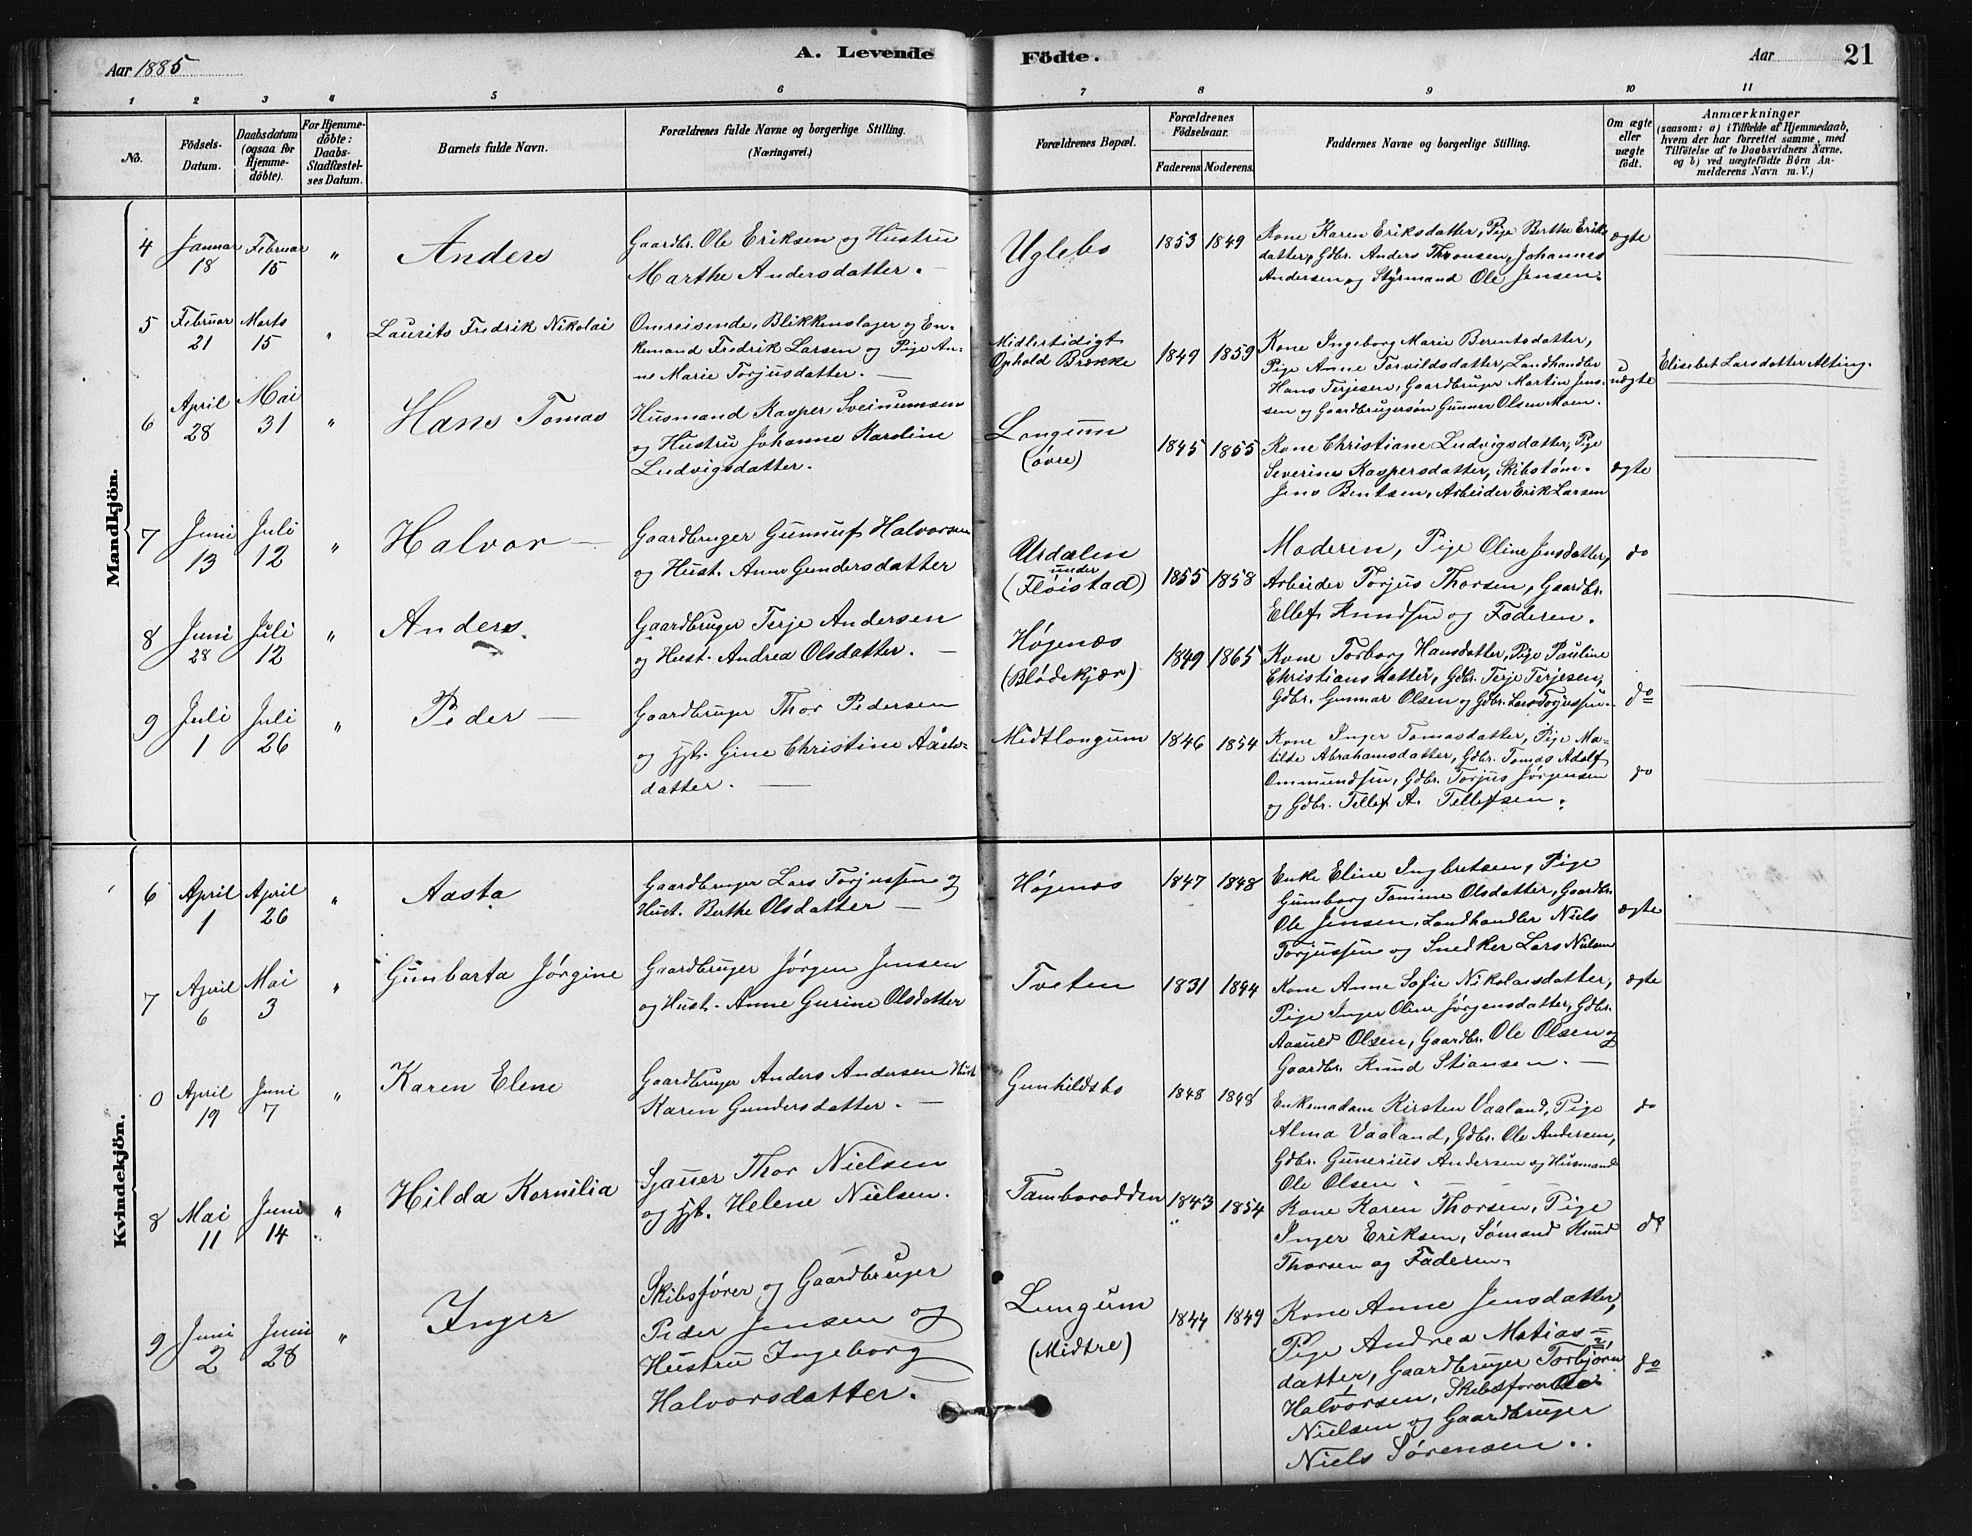 Aar 1885
A. Levende
Födte.
Aar
21
1 2 3 4 5 6 7 8 9 10 11
No.
Födsels-
Datum.
Daabsdatum
(ogsaa for
Hjemme-
döbte).
For Hjemme-
döbte:
Daabs-
Stadfæstel-
ses Datum.
Barnets fulde Navn.
Forældrenes fulde Navne og borgerlige Stilling.
(Næringsvei.)
Forældrenes Bopæl.
Forældrenes
Födselsaar.
Faderens. Moderens.
Faddernes Navne og borgerlige Stilling.
Om ægte
eller
uægte
födt.
Anmærkninger
(saasom: a) i Tilfælde af Hjemmedaab,
hvem der har forrettet samme, med
Tilföielse af to Daabsvidners Navne,
og b) ved uægtefödte Börn An-
melderens Navn m. V.)
Mandkjön.
4
Januar
18
Februar
15
"
Anders
Gaardbr. Ole Eriksen og Hustru
Marthe Andersdatter.
Uglebo
1853 1849
Kone Karen Eriksdatter, Pige Berthe Eriks-
datter, Gdbr. Anders Thronsen, Johannes
Andersen og Styrmand Ole Jensen.
ægte
5
Februar
21
Marts
15
"
Laurits Fredrik Nikolai
Omreisende, Blikkenslager og En-
kemand Fredrik Larsen og Pige An-
ne Marie Torjusdatter.
Midlertidigt
Ophold Brække
1849 1859
Kone Ingeborg Marie Berentsdatter,
Pige Anne Torvildsdatter, Landhandler
Hans Terjesen, Gaardbruger Martin Jens-
sen og Gaardbrugersøn Gunner Olsen Moen.
uægte
Elisebet Larsdatter Alting.
6
April
28
Mai
31
"
Hans Tomas
Husmand Kasper Sveinumsen
og Hustru Johanne Karoline
Ludvigsdatter.
Longum
(øvre)
1845 1855
Kone Christiane Ludvigsdatter, Pige
Severine Kaspersdatter, Skibstøm.
Jens Bentsen, Arbeider Erik Larsen
ægte
7
Juni
13
Juli
12
"
Halvor
Gaardbruger Gunnuf Halvorsen
og Hust. Anne Gundersdatter
Urdalen
under
(Fløistad)
1855 1858
Moderen, Pige Oline Jensdatter,
Arbeider Torjus Thorsen, Gaardbr.
Ellef Knudsen og Faderen.
do
8
Juni
28
Juli
12
"
Anders
Gaardbruger Terje Andersen
og Hust. Andrea Olsdatter.
Høgenæs
(Blødekjær)
1849 1865
Kone Torborg Hansdatter, Pige Pauline
Christiansdatter, Gdbr. Terje Terjesen,
Gdbr. Gunnar Olsen og Gdbr. Lars Torjussen.
do
9
Juli
1
Juli
26
"
Peder
Gaardbruger Thor Pedersen
og Hst. Gine Christine Aasls-
datter.
Midtlongum
1846 1854
Kone Inger Tomasdatter, Pige Ma-
tilde Abrahamsdatter, Gdbr. Tomas Adolf
Ommundsen, Gdbr. Torjus Jørgensen
og Gdbr. Tellef A. Tellefsen.
do
Kvindekjön.
6
April
1
April
26
"
Aasta
Gaardbruger Lars Torjussen og
Hust. Berthe Olsdatter
Høgenæs
1847 1848
Enke Eline Ingbretsen, Pige
Gumborg Tomine Olsdatter, Gaardbr.
Ole Jensen, Landhandler Niels
Torjussen og Snedker Lars Nielsen
ægte
7
April
6
Mai
3
"
Gunbarta Jørgine
Gaardbruger Jørgen Jensen
og Hust. Anne Gurine Olsdatter
Tveten
1831 1844
Kone Anne Sofie Nikolaisdatter,
Pige Inger Oline Jørgensdatter, Gdbr.
Aasuld Olsen, Gaardbr. Ole Olsen og
Gaardbr. Knud Stiansen.
ægte
0
April
19
Juni
7
"
Karen Elene
Gaardbruger Anders Andersen Hust
Karen Gundersdatter.
Gunhildsbo
1848 1848
Enkemadam Kirsten Vaaland, Pige
Alma Vaaland, Gdbr. Ole Andersen,
Gdbr. Gunerius Andersen og Husmand
Ole Olsen.
do
8
Mai
11
Juni
14
"
Hilda Kornilia
Sjauer Thor Nielsen
og Hst. Helene Nielsen.
Tamborodden
1843 1854
Kone Karen Thorsen, Pige
Inger Eriksen, Sømand Knud
Thorsen og Faderen.
do
9
Juni
2
Juni
28
"
Inger
Skibsfører og Gaardbruger
Peder Jensen og
Hustru Ingeborg
Halvorsdatter.
Lungum
(Midtre)
1844 1849
Kone Anne Jensdatter,
Pige Andrea Matias-
datter, Gaardbruger Torbjørn
Halvorsen, Skibsfører Ole
Nielsen og Gaardbruger
Niels Sørensen.
do